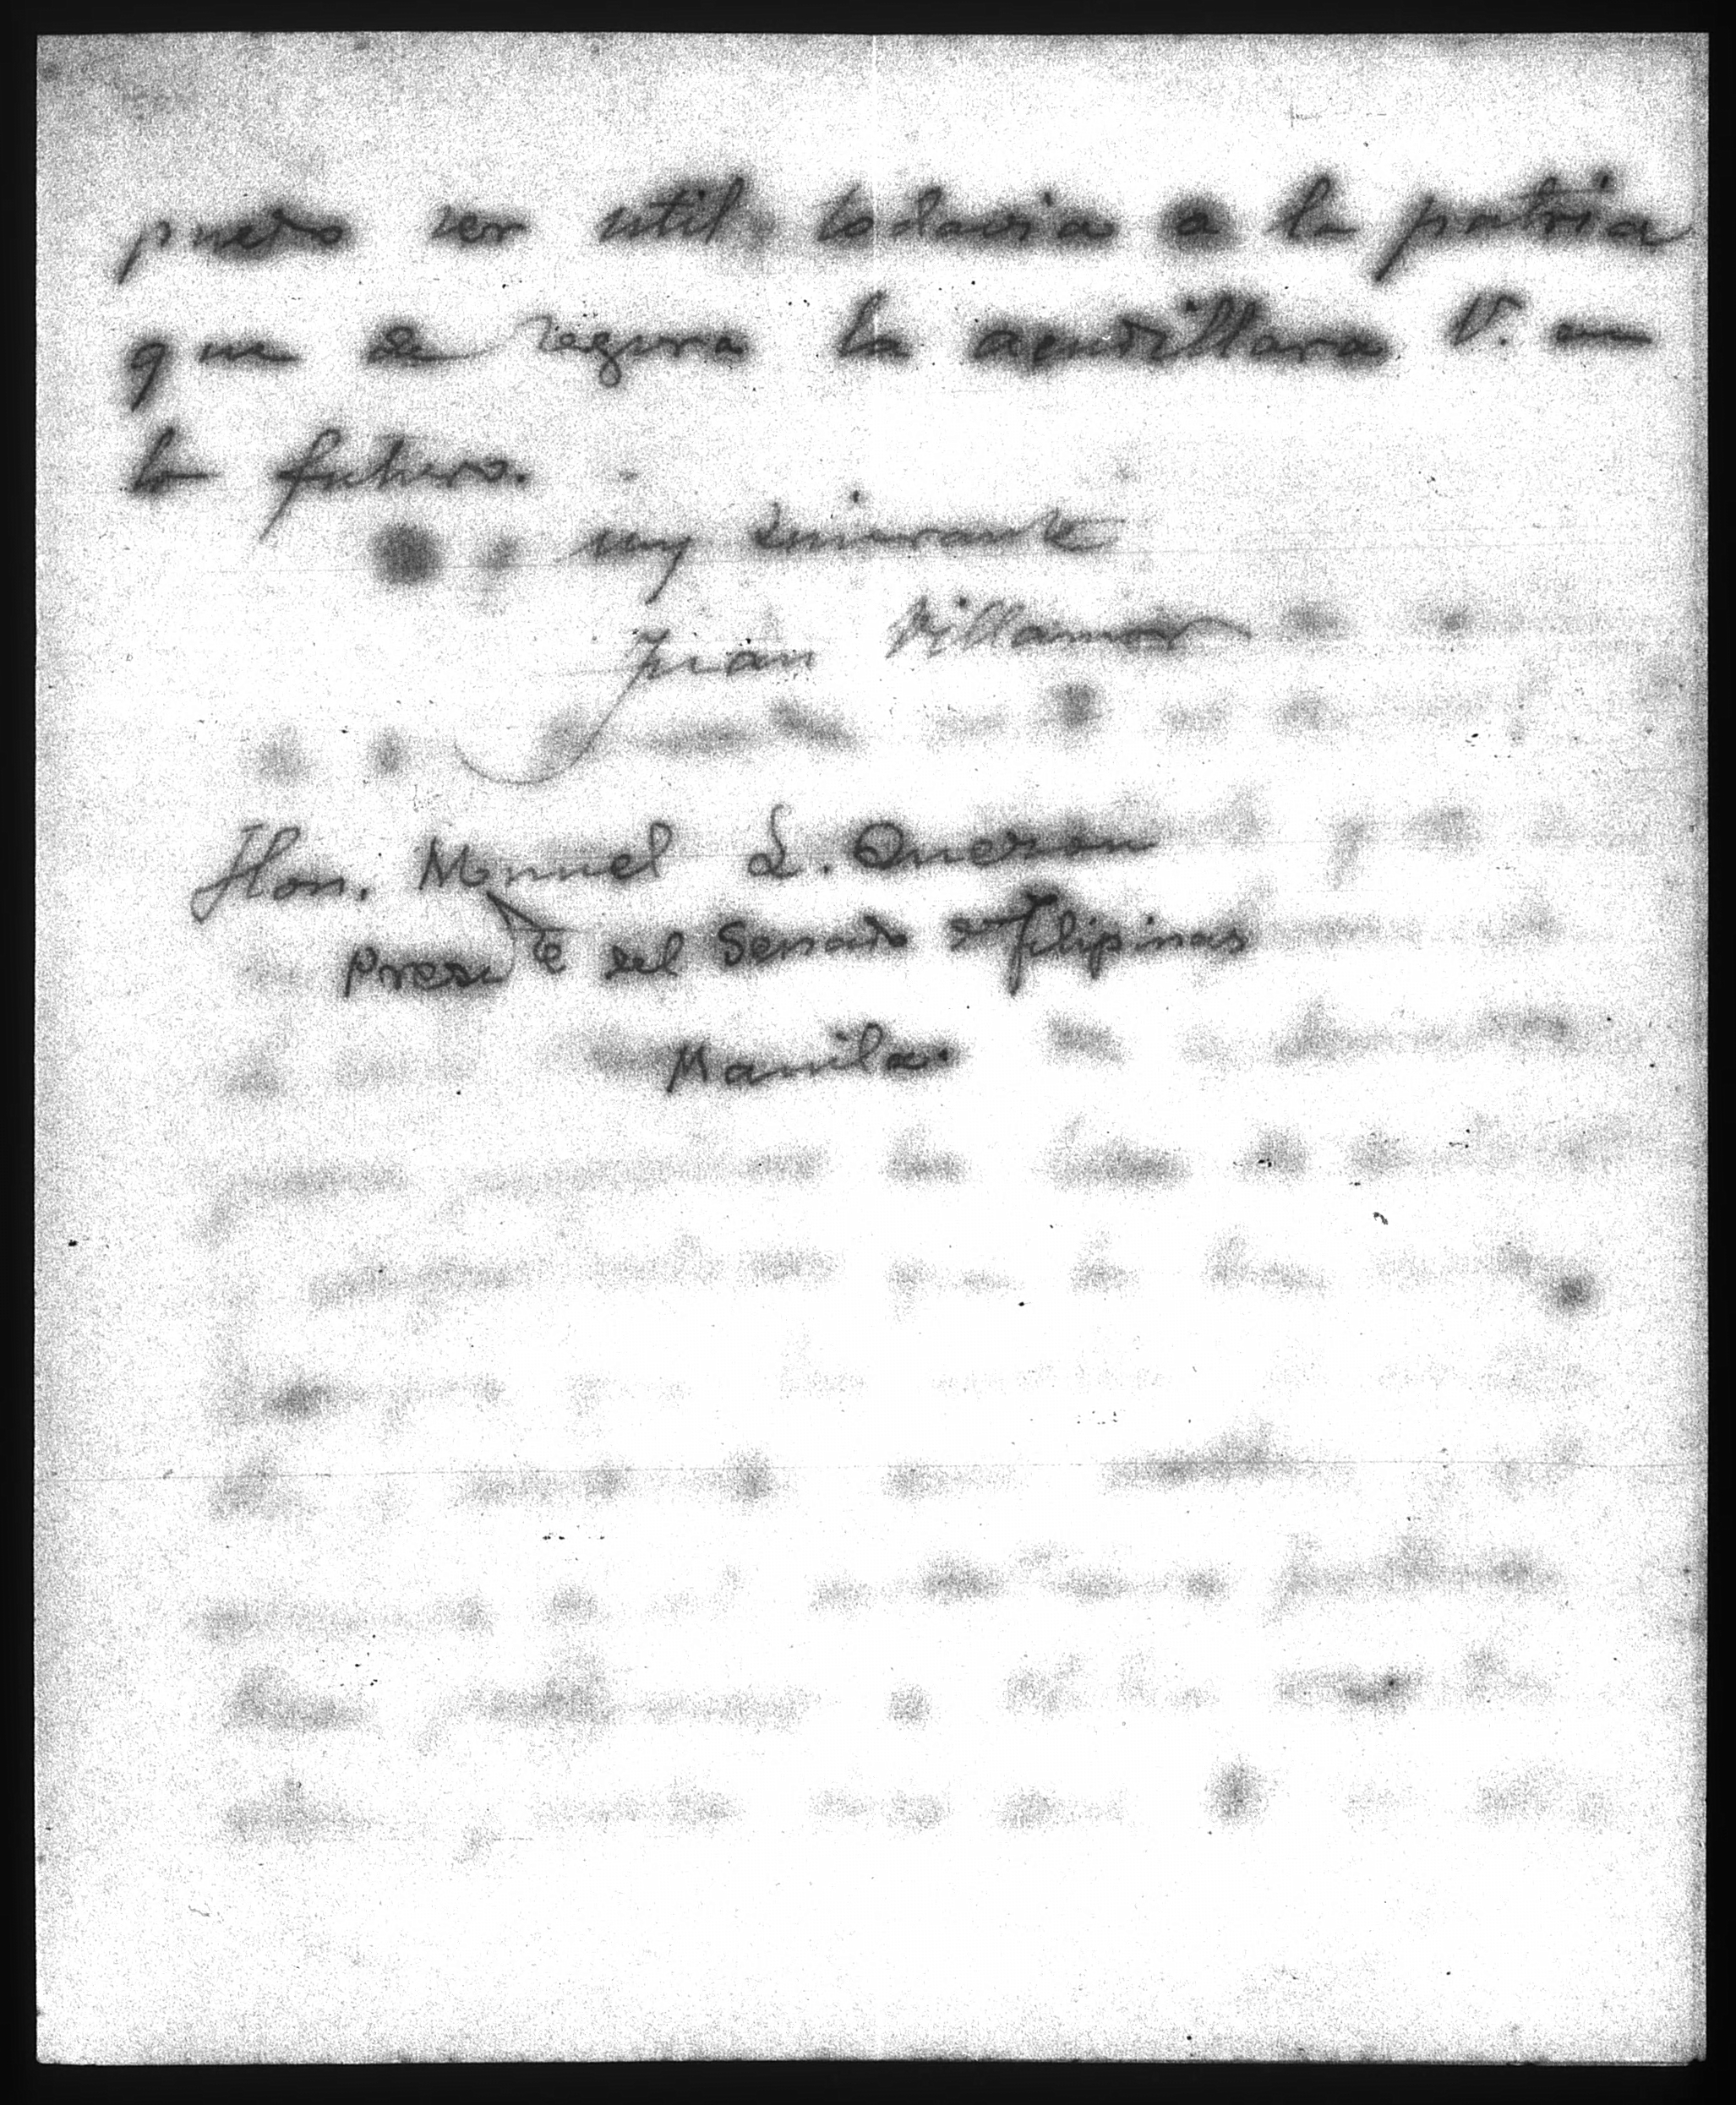 puedo ser util todavia a la patria
que de segura la acaudillara V. en
lo futuro.
muy sincerante
Juan Villamor
Hon. Manuel L. Quezon
Preste del Senado de Filipinas
Manila.